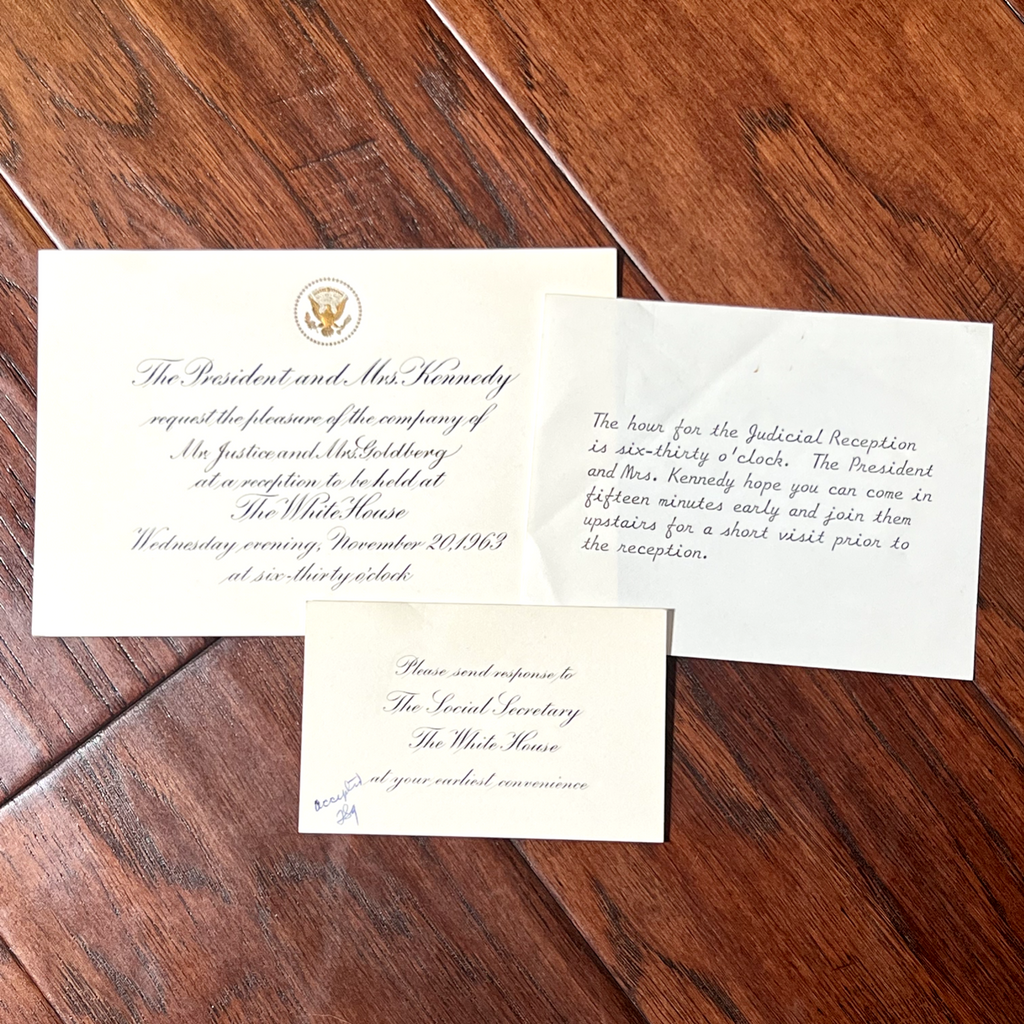 The President and Mrs. Kennedy
request the pleasure of the company of
Mr. Justice and Mrs. Goldberg
at a reception to be held at
The White House
Wednesday evening, November 20, 1963
at six-thirty o'clock
The hour for the Judicial Reception
is six-thirty o'clock. The President
and Mrs. Kennedy hope you can come in
fifteen minutes early and join them
upstairs for a short visit prior to
the reception.
Please send response to
The Social Secretary
The White House
at your earliest convenience
accepted